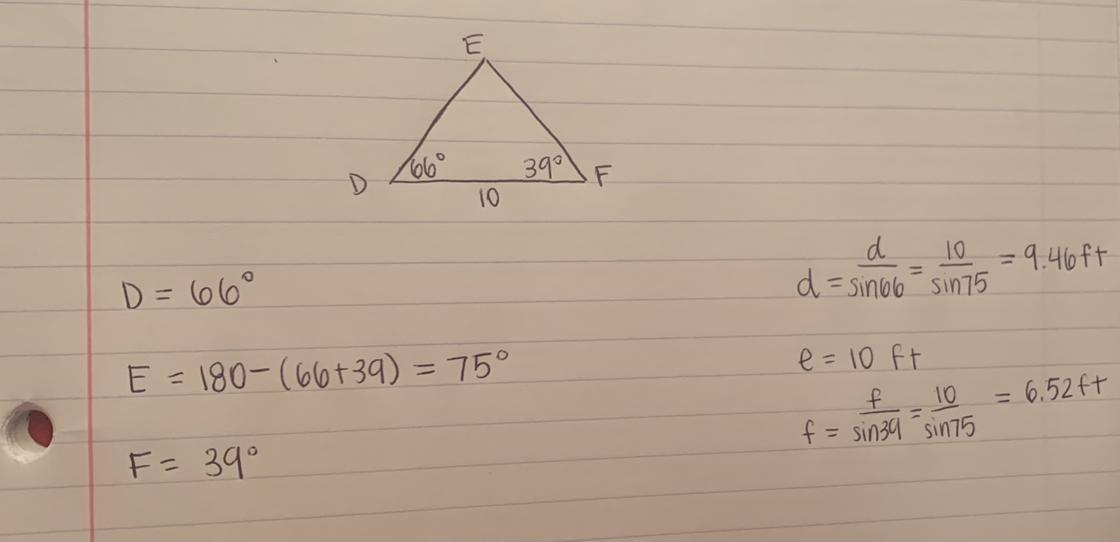 E
66°
39°
D
F
10
D = 66°
E = 180-(66+39) = 75°
F = 39°
d = d/sin66 = 10/sin75 = 9.46ft
e = 10 ft
f = f/sin39 = 10/sin75 = 6.52ft